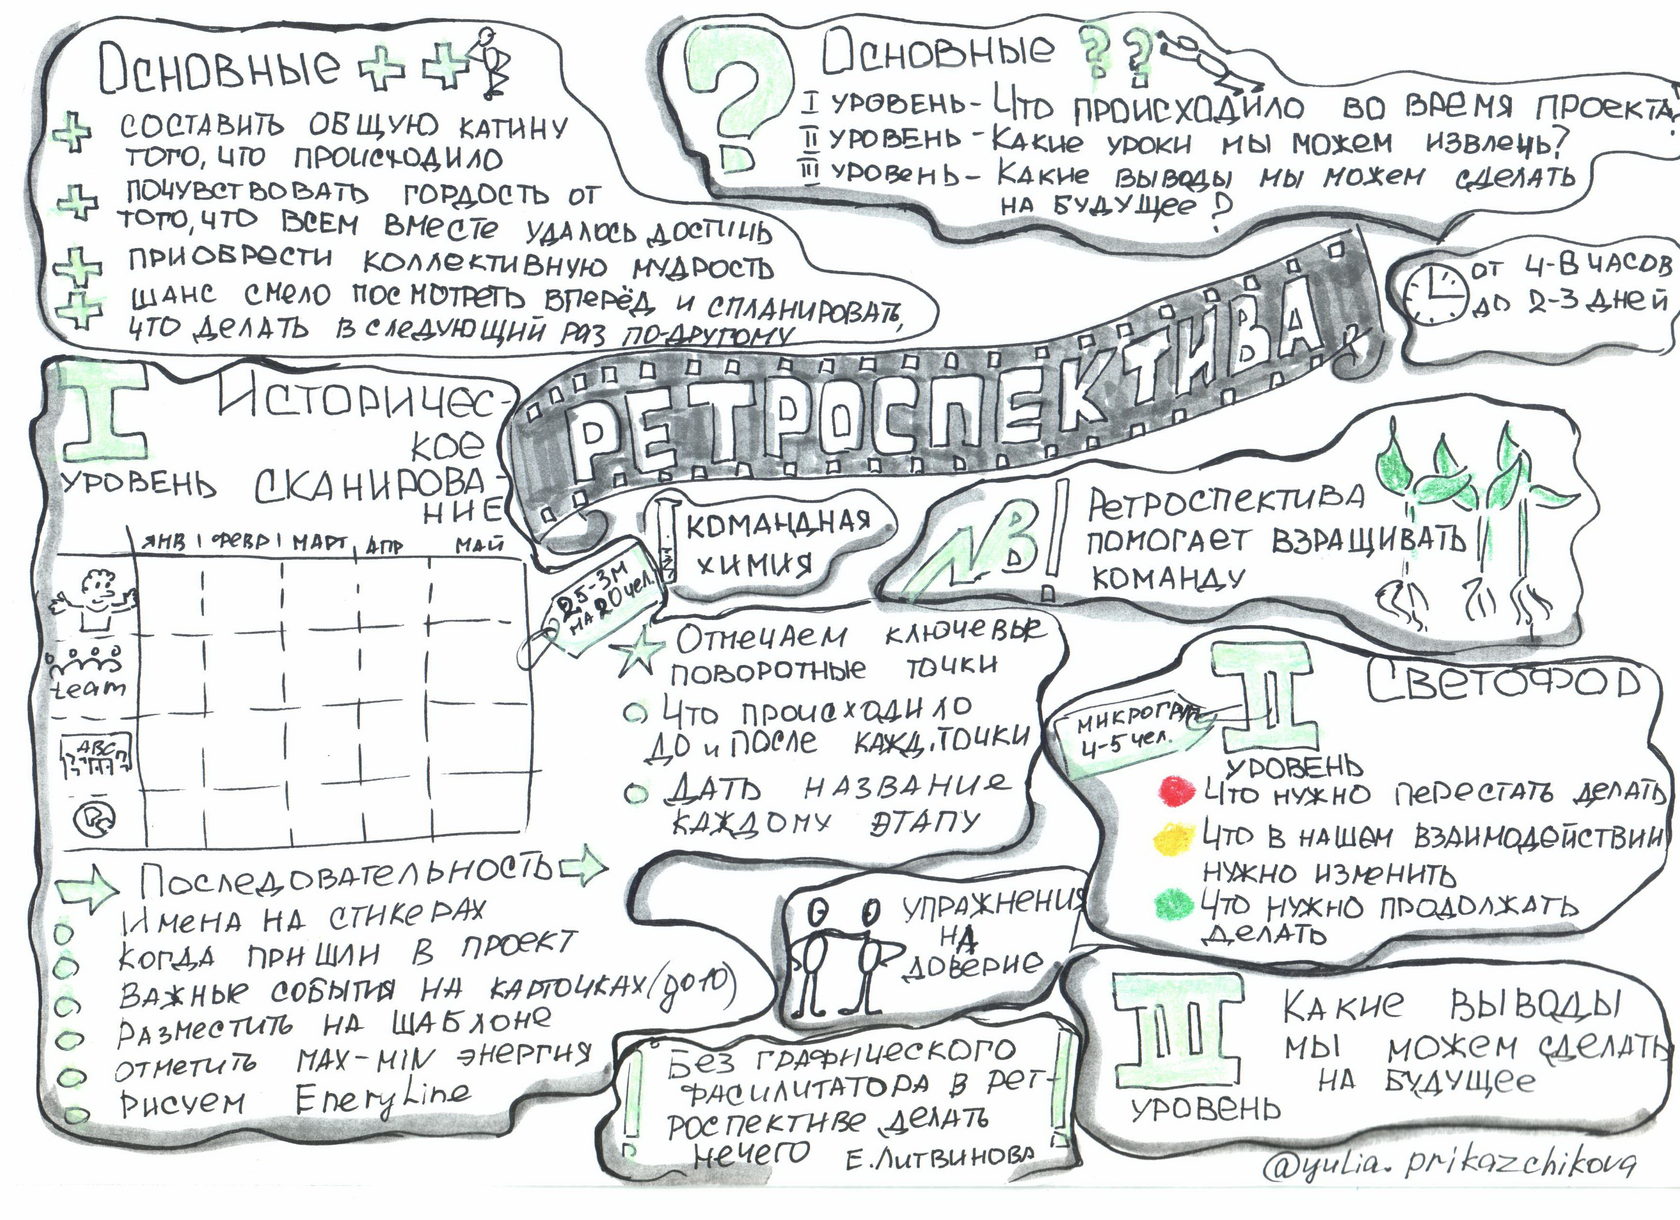 Основные
составить общую катину
того, что происходило
почувствовать гордость от
того, что всем вместе удалось достичь
приобрести коллективную мудрость
шанс смело посмотреть вперёд и спланировать,
что делать в следующий раз по-другому
Основные ? ?
I уровень - Что происходило во время проекта?
II уровень - Какие уроки мы можем извлечь?
III уровень - Какие выводы мы можем сделать
на будущее?
от 4-8 часов
до 2-3 дней
РЕТРОСПЕКТИВА
I
уровень
Историчес-
кое
сканирова-
ние
янв февр март апр май
team
ABC
Последовательность
Имена на стикерах
Когда пришли в проект
Важные события на карточках (до 10)
Разместить на шаблоне
отметить max-min энергия
рисуем EneryLine
2,5-3м
на 20 чел.
Командная
химия
NB!
Ретроспектива
помогает взращивать
команду
Отмечаем ключевые
поворотные точки
Что происходило
до и после кажд. точки
Дать название
каждому этапу
II
уровень
Светофор
микрогруп
4-5 чел.
Что нужно перестать делать
Что в нашем взаимодействии
нужно изменить
Что нужно продолжать
делать
Упражнения
на
доверие
Без графического
фасилитатора в рет-
роспективе делать
нечего Е. Литвинова
III
уровень
Какие выводы
мы можем сделать
на будущее
@yulia.prikazchikova